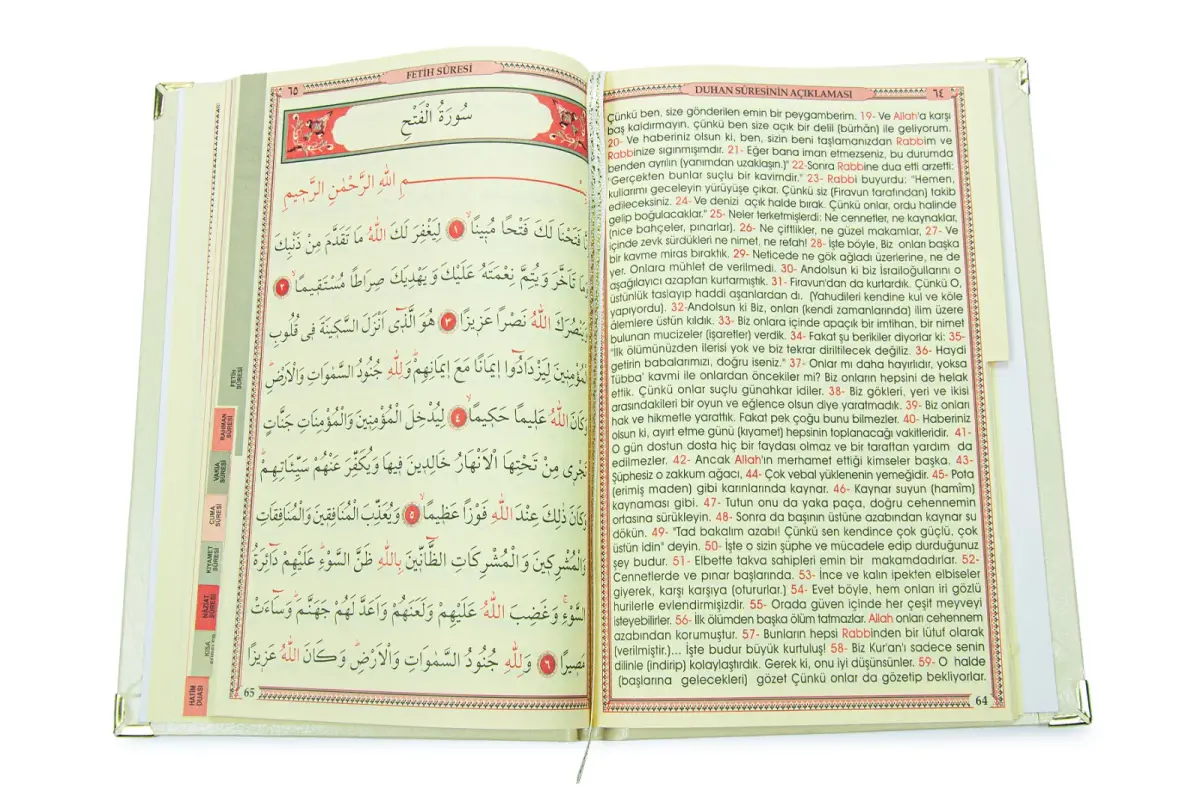 DUHAN SÛRESİNİN AÇIKLAMASI
٦٤
Çünkü ben, size gönderilen emin bir peygamberim. 19- Ve Allah'a karşı
baş kaldırmayın, çünkü ben size açık bir delil (bürhân) ile geliyorum.
20- Ve haberiniz olsun ki, ben, sizin beni taşlamanızdan Rabbim ve
Rabbinize sığınmışımdır. 21- Eğer bana iman etmezseniz, bu durumda
benden ayrılın (yanımdan uzaklaşın.)" 22-Sonra Rabbine dua etti arzetti:
"Gerçekten bunlar suçlu bir kavimdir." 23- Rabbi buyurdu: "Hemen,
kullarımı geceleyin yürüyüşe çıkar. Çünkü siz (Firavun tarafından) takib
edileceksiniz. 24- Ve denizi açık halde bırak. Çünkü onlar, ordu halinde
gelip boğulacaklar." 25- Neler terketmişlerdi: Ne cennetler, ne kaynaklar,
(nice bahçeler, pınarlar). 26- Ne çiftlikler, ne güzel makamlar, 27- Ve
içinde zevk sürdükleri ne nimet, ne refah! 28- İşte böyle, Biz onları başka
bir kavme miras bıraktık. 29- Neticede ne gök ağladı üzerlerine, ne de
yer. Onlara mühlet de verilmedi. 30- Andolsun ki biz İsrailoğullarını o
aşağılayıcı azaptan kurtarmıştık. 31- Firavun'dan da kurtardık. Çünkü O,
üstünlük taslayıp haddi aşanlardan dı. (Yahudileri kendine kul ve köle
yapıyordu). 32-Andolsun ki Biz, onları (kendi zamanlarında) ilim üzere
âlemlere üstün kıldık. 33- Biz onlara içinde apaçık bir imtihan, bir nimet
bulunan mucizeler (işaretler) verdik. 34- Fakat şu berikiler diyorlar ki: 35-
"İlk ölümünüzden ilerisi yok ve biz tekrar diriltilecek değiliz. 36- Haydi
getirin babalarımızı, doğru iseniz." 37- Onlar mı daha hayırlıdır, yoksa
Tübba' kavmi ile onlardan öncekiler mi? Biz onların hepsini de helak
ettik. Çünkü onlar suçlu günahkar idiler. 38- Biz gökleri, yeri ve ikisi
arasındakileri bir oyun ve eğlence olsun diye yaratmadık. 39- Biz onları
hak ve hikmetle yarattık. Fakat pek çoğu bunu bilmezler. 40- Haberiniz
olsun ki, ayırt etme günü (kıyamet) hepsinin toplanacağı vakitleridir. 41-
O gün dostun dosta hiç bir faydası olmaz ve bir taraftan yardım da
edilmezler. 42- Ancak Allah'ın merhamet ettiği kimseler başka. 43-
Şüphesiz o zakkum ağacı, 44- Çok vebal yüklenenin yemeğidir. 45- Pota
(erimiş maden) gibi karınlarında kaynar. 46- Kaynar suyun (hamîm)
kaynaması gibi. 47- Tutun onu da yaka paça, doğru cehennemin
ortasına sürükleyin. 48- Sonra da başının üstüne azabından kaynar su
dökün. 49- "Tad bakalım azabı! Çünkü sen kendince çok güçlü, çok
üstün idin" deyin. 50- İşte o sizin şüphe ve mücadele edip durduğunuz
şey budur. 51- Elbette takva sahipleri emin bir makamdadırlar. 52-
Cennetlerde ve pınar başlarında. 53- İnce ve kalın ipekten elbiseler
giyerek, karşı karşıya (otururlar.) 54- Evet böyle, hem onları iri gözlü
hurilerle evlendirmişizdir. 55- Orada güven içinde her çeşit meyveyi
isteyebilirler. 56- İlk ölümden başka ölüm tatmazlar. Allah onları cehennem
azabından korumuştur. 57- Bunların hepsi Rabbinden bir lütuf olarak
(verilmiştir.)... İşte budur büyük kurtuluş! 58- Biz Kur'an'ı sadece senin
dilinle (indirip) kolaylaştırdık. Gerek ki, onu iyi düşünsünler. 59- O halde
(başlarına gelecekleri) gözet Çünkü onlar da gözetip bekliyorlar.
64
FETİH SÛRESİ
٦٥
سُورَةُ الْفَتْحِ
بِسْمِ اللهِ الرَّحْمٰنِ الرَّحِيمِ
اِنَّا فَتَحْنَا لَكَ فَتْحًا مُبِينًا ۙ ١ لِيَغْفِرَ لَكَ اللهُ مَا تَقَدَّمَ مِنْ ذَنْبِكَ
وَمَا تَاَخَّرَ وَيُتِمَّ نِعْمَتَهُ عَلَيْكَ وَيَهْدِيَكَ صِرَاطًا مُسْتَقِيمًا ۙ ٢
وَيَنْصُرَكَ اللهُ نَصْرًا عَزِيزًا ٣ هُوَ الَّذٖٓي اَنْزَلَ السَّكِينَةَ فِي قُلُوبِ
الْمُؤْمِنِينَ لِيَزْدَادُٓوا اِيمَانًا مَعَ اِيمَانِهِمْ ؕ وَلِلّٰهِ جُنُودُ السَّمٰوَاتِ وَالْاَرْضِ ؕ
وَكَانَ اللهُ عَلِيمًا حَكِيمًا ۙ ٤ لِيُدْخِلَ الْمُؤْمِنِينَ وَالْمُؤْمِنَاتِ جَنَّاتٍ
تَجْرِي مِنْ تَحْتِهَا الْاَنْهَارُ خَالِدِينَ فِيهَا وَيُكَفِّرَ عَنْهُمْ سَيِّـَٔاتِهِمْ ؕ
وَكَانَ ذٰلِكَ عِنْدَ اللهِ فَوْزًا عَظِيمًا ۙ ٥ وَيُعَذِّبَ الْمُنَافِقِينَ وَالْمُنَافِقَاتِ
وَالْمُشْرِكِينَ وَالْمُشْرِكَاتِ الظَّٓانِّينَ بِاللهِ ظَنَّ السَّوْءِ ؕ عَلَيْهِمْ دَٓائِرَةُ
السَّوْءِ ۚ وَغَضِبَ اللهُ عَلَيْهِمْ وَلَعَنَهُمْ وَاَعَدَّ لَهُمْ جَهَنَّمَ ؕ وَسَٓاءَتْ
مَصِيرًا ٦ وَلِلّٰهِ جُنُودُ السَّمٰوَاتِ وَالْاَرْضِ ؕ وَكَانَ اللهُ عَزِيزًا
65
FETİH
SÛRESİ
RAHMAN
SÛRESİ
VAKIA
SÛRESİ
CUMA
SÛRESİ
KIYAMET
SÛRESİ
NÂZİAT
SÛRESİ
KISA
HATİM
DUASI